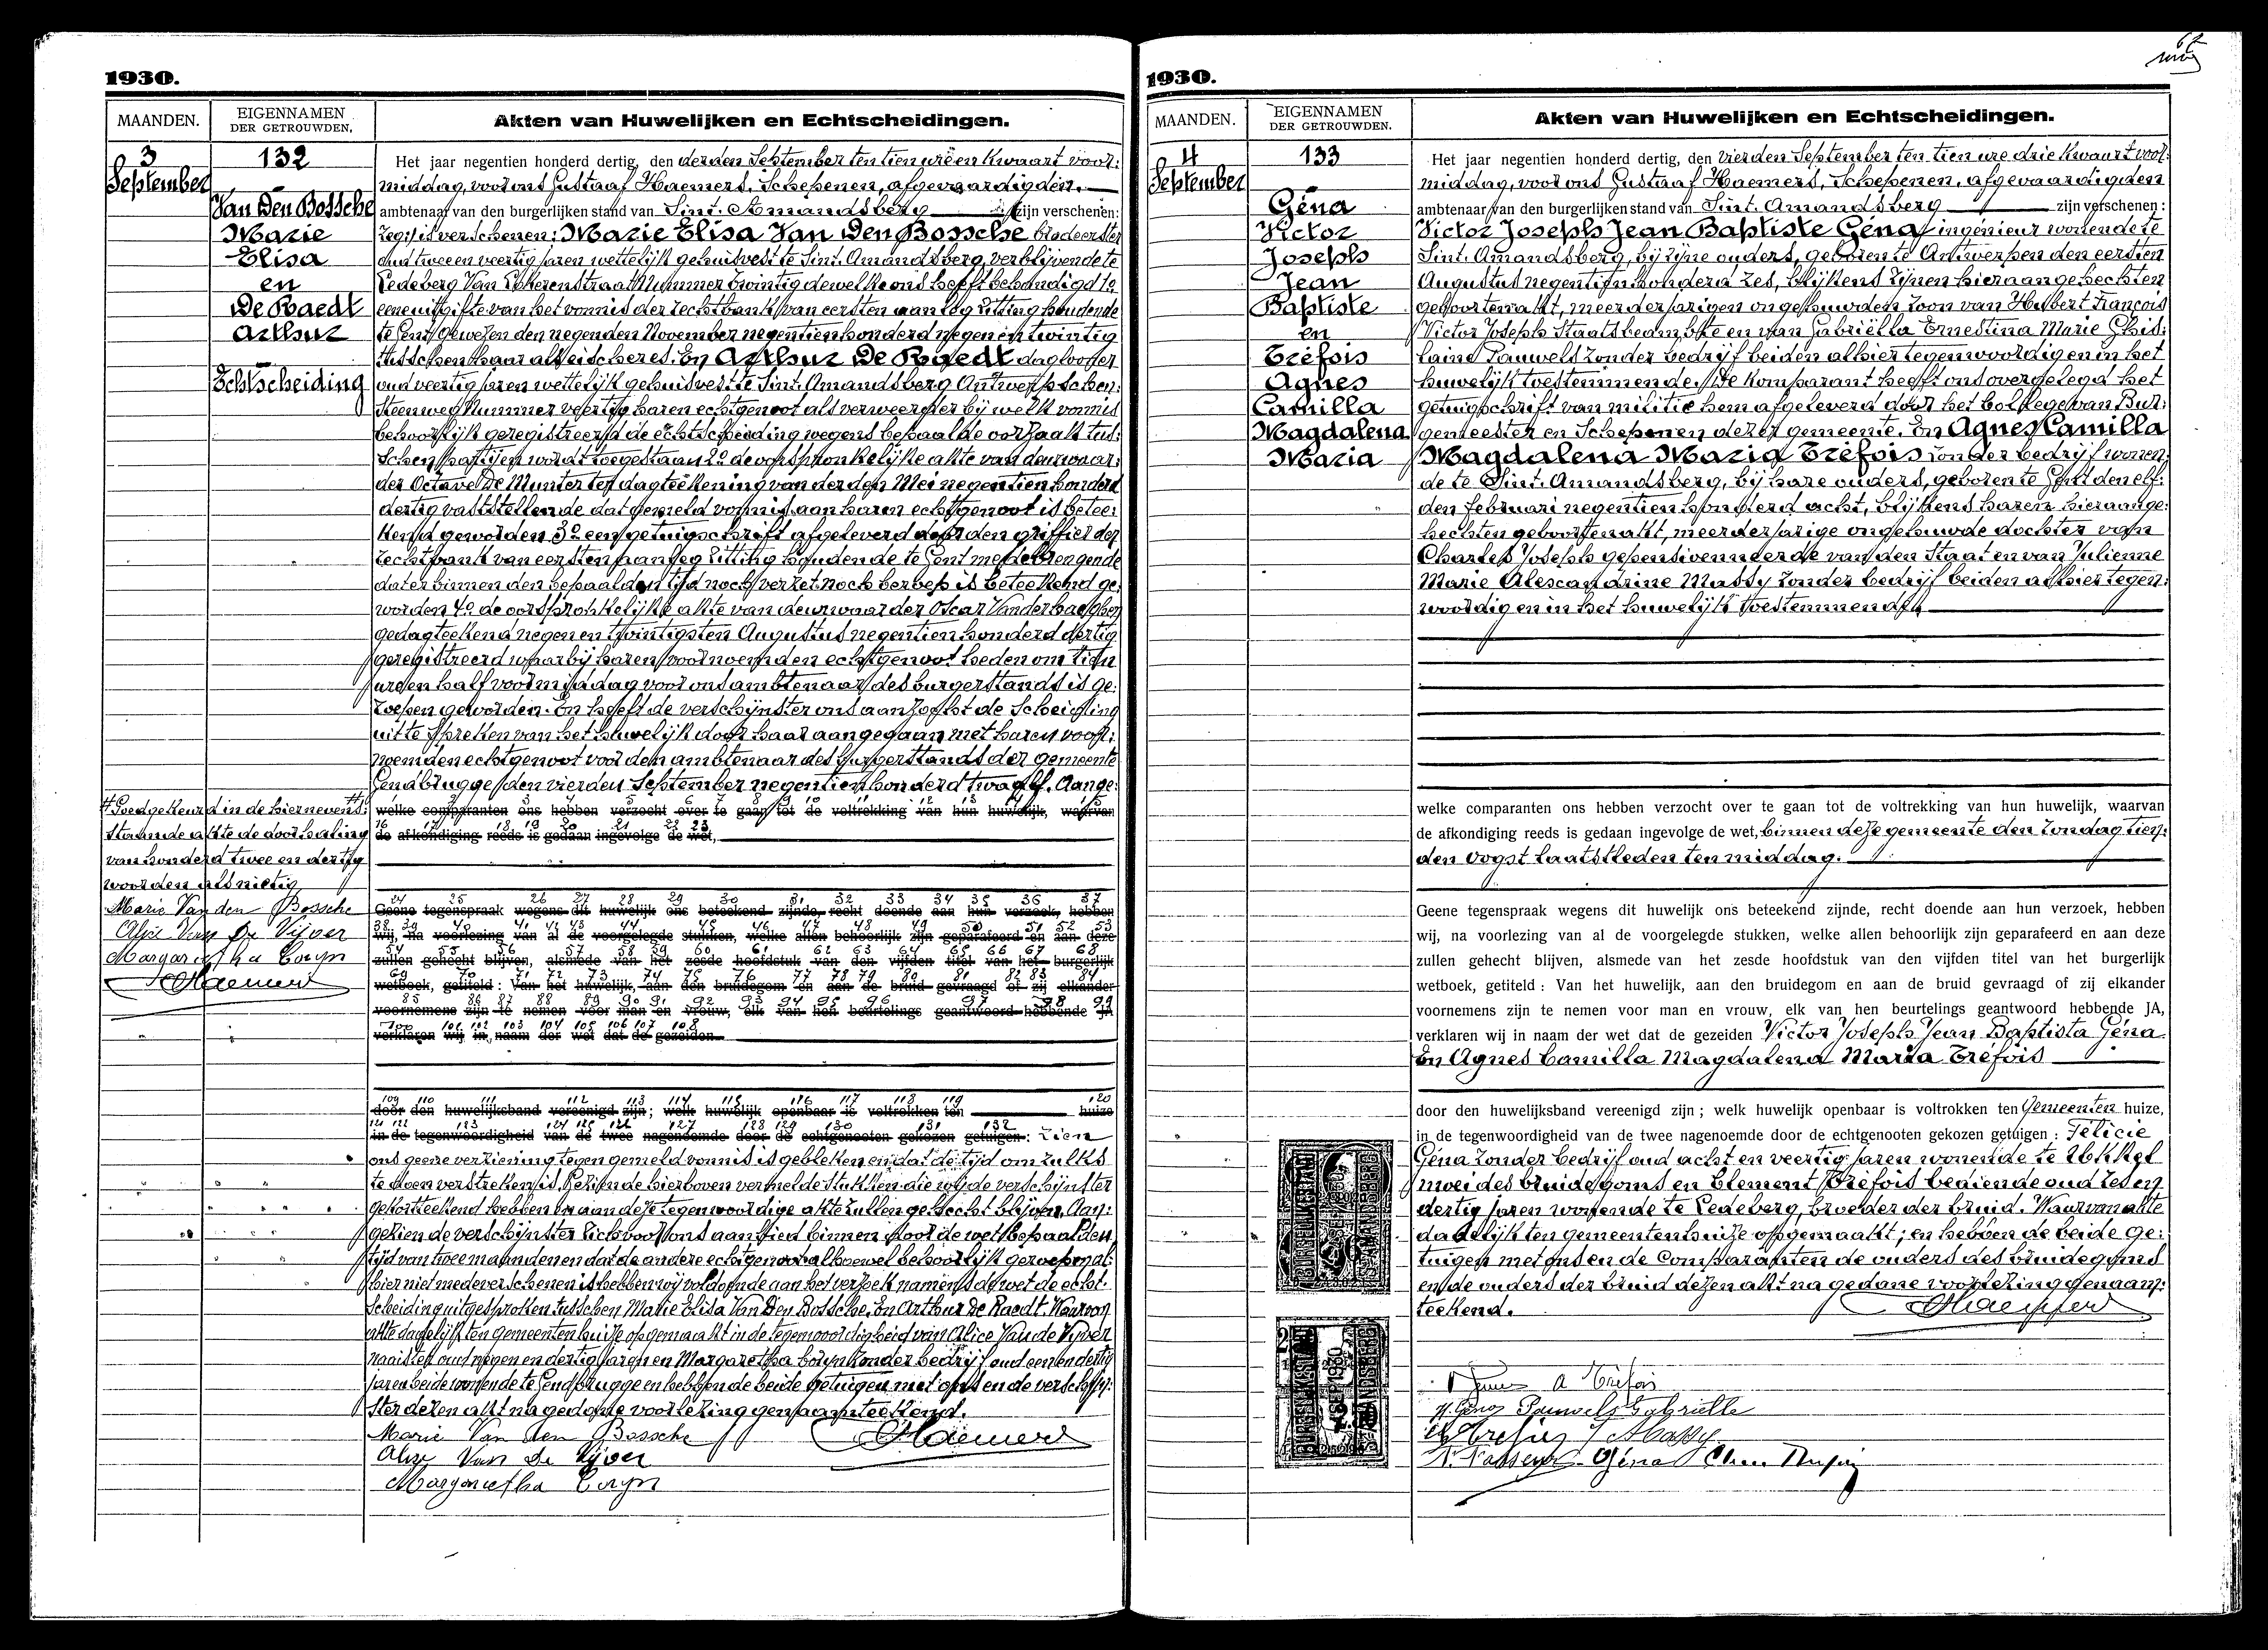 1930.
MAANDEN.
EIGENNAMEN
DER GETROUWDEN.
Akten van Huwelijken en Echtscheidingen.
3
September
132
Van Den Bossche
Marie
Elisa
en
De Raedt
Arthur
Echtscheiding
Het jaar negentien honderd dertig, den derden September ten tien ure en kwaart voor:
middag, voor ons Gustaaf Haemers, Schepenen, afgevaardigden
ambtenaar van den burgerlijken stand van Sint. Amandsberg zijn verschenen:
is verschenen: Marie Elisa Van Den Bossche
oud twee en veertig jaren wettelijk gehuisvest te Sint. Amandsberg, verblijvende te
Ledeberg Van straat Nummer twintig dewelke ons heeft behandigd 1o
eene uitgifte van het vonnis der rechtbank van eersten aanleg zitting houdende
te Gent gewezen den negenden November negentien honderd negen en twintig
tusschen haar als eischeres. En Arthur De Raedt daglooner
oud veertig jaren wettelijk gehuisvest te Sint. Amandsberg Antwerpschen:
Steenweg Nummer veertig haren echtgenoot als verweerder bij welk vonnis
behoorlijk geregistreerd de echtscheiding wegens bepaalde oorzaak tus:
schen partijen wordt toegestaan 2o de oorspronkelijke akte van deurwaar:
der Octave De Munter ter dagteekening van derden Mei negentien honderd
dertig vaststellende dat gemeld vonnis aan haren echtgenoot is betee:
kend geworden 3o een getuigschrift afgeleverd door den griffier der
rechtbank van eersten aanleg zitting houdende te Gent medebrengende
dat er binnen den bepaalden tijd noch verzet noch beroep is beteekend ge:
worden 4o de oorspronkelijke akte van deurwaarder Oscar Vanderhaeghen
gedagteekend negen en twintigsten Augustus negentien honderd dertig
geregistreerd waarbij haren voornoemden echtgenoot heden om tien
uren half voormiddag voor ons ambtenaar des burgerstands is ge:
roepen geworden. En heeft de verschijnster ons aanzocht de scheiding
uit te spreken van het huwelijk door haar aangegaan met haren voor:
noemden echtgenoot voor den ambtenaar des burgerstands der gemeente
Gendbrugge den vierden September negentien honderd twaalf. Aange:
Goedgekeurd in de hiernevens:
staande akte de doorhaling
van honderd twee en dertig
woorden als nietig
Marie Van den Bossche
Alice Van De Vijver
Margaretha Coryn
Haemers
welke comparanten ons hebben verzocht over te gaan tot de voltrekking van hun huwelijk, waarvan
de afkondiging reeds is gedaan ingevolge de wet,
Geene tegenspraak wegens dit huwelijk ons beteekend zijnde, recht doende aan hun verzoek, hebben
wij, na voorlezing van al de voorgelegde stukken, welke allen behoorlijk zijn geparafeerd en aan deze
zullen gehecht blijven, alsmede van het zesde hoofdstuk van den vijfden titel van het burgerlijk
wetboek, getiteld: Van het huwelijk, aan den bruidegom en aan de bruid gevraagd of zij elkander
voornemens zijn te nemen voor man en vrouw, elk van hen beurtelings geantwoord hebbende JA
verklaren wij in naam der wet dat de gezeiden
door den huwelijksband vereenigd zijn; welk huwelijk openbaar is voltrokken ten huize
in de tegenwoordigheid van de twee nagenoemde door de echtgenooten gekozen getuigen: zien
ons geene verziening tegen gemeld vonnis is gebleken en dat de tijd om zulks
te doen verstreken is. Gezien de hierboven vermelde stukken die wij de verschijnster
gekortteekend hebben en aan deze tegenwoordige akte zullen gehecht blijven. Aan:
gezien de verschijnster zich voor ons aanbied binnen door de wet bepaalden
tijd van twee maanden en dat de andere echtgenoot alhoewel behoorlijk geroepen al:
hier niet mede verschenen is hebben wij voldoende aan het verzoek namens de wet de echt:
scheiding uitgesproken tusschen Marie Elisa Van Den Bossche. En Arthur De Raedt. Waarvan
akte dadelijk ten gemeentenhuize opgemaakt in de tegenwoordigheid van Alice Van de Vijver
naaister oud negen en dertig jaren en Margaretha Coryn zonder bedrijf oud een en dertig
jaren beide wonende te Gendbrugge en hebben de beide getuigen met ons en de verschijn:
ster dezen akt na gedane voorlezing genaamteekend.
Marie Van den Bossche
Haemers
Alice Van de Vijver
Margaretha Coryn
1930.
MAANDEN.
EIGENNAMEN
DER GETROUWDEN.
Akten van Huwelijken en Echtscheidingen.
4
September
133
Géna
Victor
Joseph
Jean
Baptiste
en
Tréfois
Agnes
Camilla
Magdalena
Maria
Het jaar negentien honderd dertig, den vierden September ten tien ure drie kwaart voor:
middag, voor ons Gustaaf Haemers, Schepenen, afgevaardigden
ambtenaar van den burgerlijken stand van Sint. Amandsberg zijn verschenen:
Victor Joseph Jean Baptiste Géna, ingénieur wonende te
Sint. Amandsberg, bij zijne ouders, geboren te Antwerpen den eersten
Augustus negentien honderd zes, blijkens zijnen hieraangehechten
geboortenakt, meerderjarigen ongehuwden zoon van Hubert François
Victor Joseph Staatsbeambte en van Gabriëlla Ernestina Marie Ghis:
laine Pauwels zonder bedrijf beiden alhier tegenwoordig en in het
huwelijk toestemmende. De komparant heeft ons overgelegd het
getuigschrift van militie hem afgeleverd door het Collegevan Bur:
gemeester en Schepenen dezer gemeente. En Agnes Camilla
Magdalena Maria Tréfois zonder bedrijf wonen:
de te Sint. Amandsberg, bij hare ouders, geboren te Gent den elf:
den Februari negentien honderd acht, blijkens haren hieraange:
hechten geboortenakt, meerderjarige ongehuwde dochter van
Charles Joseph gepensionneerde van den Staat en van Julienne
Marie Alexandrine Massy zonder bedrijf beiden alhier tegen:
woordig en in het huwelijk toestemmende
welke comparanten ons hebben verzocht over te gaan tot de voltrekking van hun huwelijk, waarvan
de afkondiging reeds is gedaan ingevolge de wet, binnen deze gemeente den Zondag tien:
den Oogst laatstleden ten middag.
Geene tegenspraak wegens dit huwelijk ons beteekend zijnde, recht doende aan hun verzoek, hebben
wij, na voorlezing van al de voorgelegde stukken, welke allen behoorlijk zijn geparafeerd en aan deze
zullen gehecht blijven, alsmede van het zesde hoofdstuk van den vijfden titel van het burgerlijk
wetboek, getiteld: Van het huwelijk, aan den bruidegom en aan de bruid gevraagd of zij elkander
voornemens zijn te nemen voor man en vrouw, elk van hen beurtelings geantwoord hebbende JA,
verklaren wij in naam der wet dat de gezeiden Victor Joseph Jean Baptista Géna
En Agnes Camilla Magdalena Maria Tréfois
door den huwelijksband vereenigd zijn; welk huwelijk openbaar is voltrokken ten Gemeenten huize,
in de tegenwoordigheid van de twee nagenoemde door de echtgenooten gekozen getuigen: Félicie
Géna zonder bedrijf oud acht en veertig jaren wonende te Ukkel
moei des bruidegoms en Clement Tréfois bediende oud zes en
dertig jaren wonende te Ledeberg, broeder der bruid. Waarvan akte
dadelijk ten gemeentenhuize opgemaakt; en hebben de beide ge:
tuigen met ons en de Comparanten de ouders des bruidegoms
en de ouders der bruid dezen akt na gedane voorlezing genaam:
teekend.
Haemers
A Tréfois
Pauwels Gabrielle
J Massy
Géna